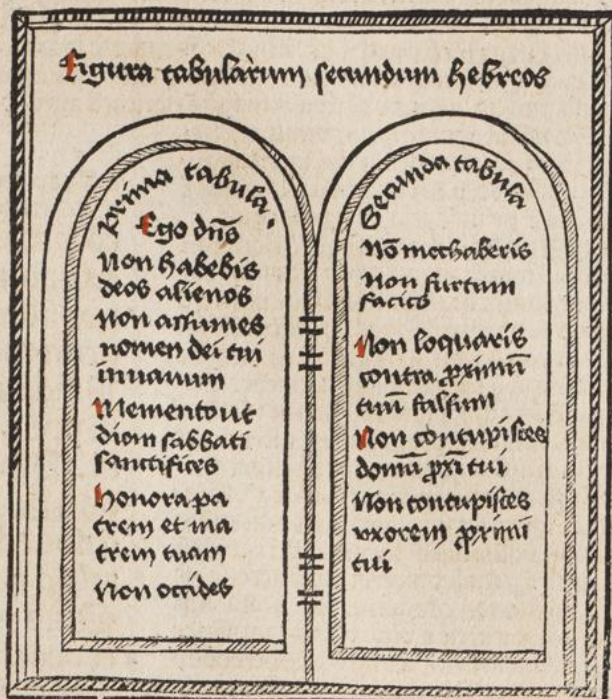 Figura tabularum secundum hebreos
Prima tabula.
Ego dns̄
Non habebis
deos alienos
Non assumes
nomen dei tui
in uanum
Memento ut
diem sabbati
sanctifices
Honora pa
trem et ma
trem tuam
Non occides
Secunda tabula
Nō mechaberis
Non furtum
facies
Non loquaris
contra ꝓximū
tuū falsum
Non concupisces
domū ꝓxi tui
Non concupisces
vxorem ꝓximi
tui